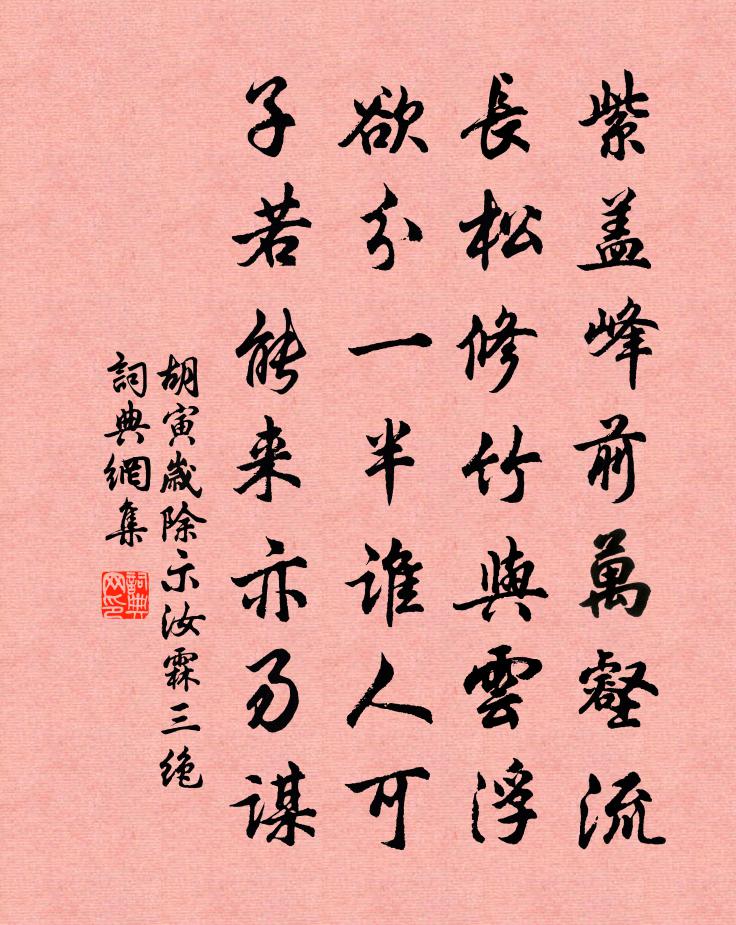 紫盖峰前萬壑流
長松修竹與雲浮
欲分一半誰人可
子若能来亦易謀
胡寅歲除示汝霖三绝
詞典網集
詞典网印